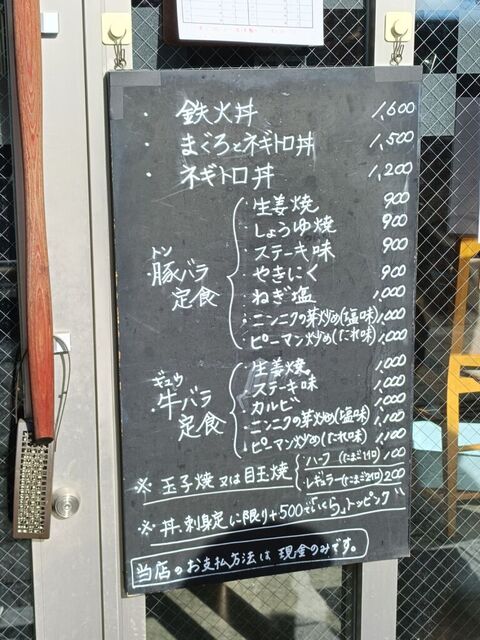 ・鉄火丼 1,600
・まぐろとネギトロ丼 1,500
・ネギトロ丼 1,200
トン
・豚バラ定食
・生姜焼 900
・しょうゆ焼 900
・ステーキ味 900
・やきにく 900
・ねぎ塩 1,000
・ニンニクの芽炒め(塩味) 1,000
・ピーマン炒め(たれ味) 1,000
ギュウ
・牛バラ定食
・生姜焼 1,000
・ステーキ味 1,000
・カルビ 1,000
・ニンニクの芽炒め(塩味) 1,100
・ピーマン炒め(たれ味) 1,100
※ 玉子焼又は目玉焼
・ハーフ (たまご1ケ) 100
・レギュラー(たまご2ケ) 200
※ 丼、刺身定に限り+500で「いくら」トッピング
当店のお支払方法は現金のみです。